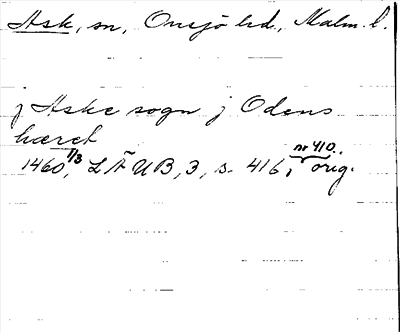 Ask, sn, Onsjö hd., Malm. l.
j Aske sogn j Odens
hæret
1460 7/3, L Ä U B, 3, s. 416, nr 410. orig.